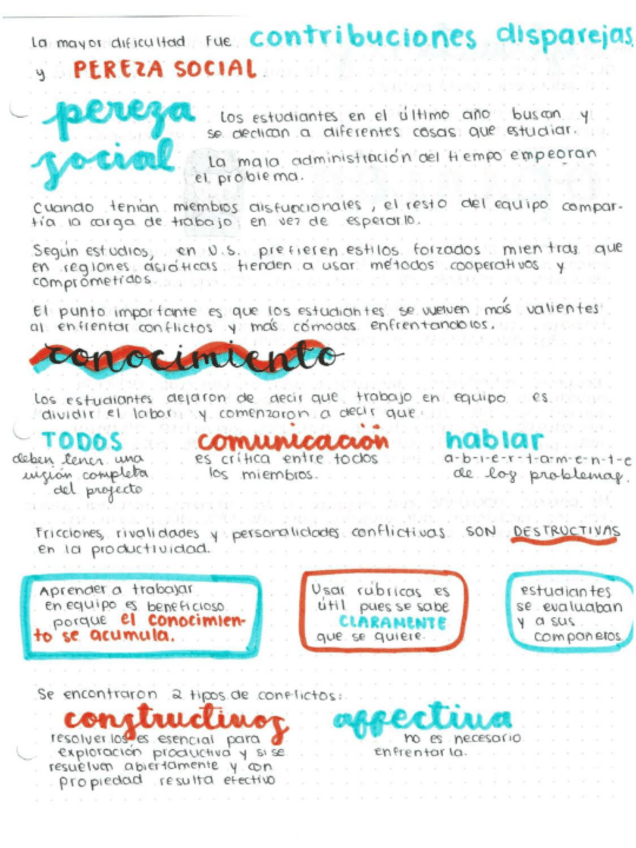 La mayor dificultad fue contribuciones disparejas
y PEREZA SOCIAL.
pereza
social
Los estudiantes en el último año buscan y
se dedican a diferentes cosas que estudiar.
La mala administración del tiempo empeoran
el problema.
Cuando tenían miembros disfuncionales, el resto del equipo compar-
tía la carga de trabajo en vez de esperarlo.
Según estudios, en U.S. prefieren estilos forzados mientras que
en regiones asiáticas tienden a usar métodos cooperativos y
comprometidos.
El punto importante es que los estudiantes se vuelven más valientes
al enfrentar conflictos y más cómodos enfrentandolos.
conocimiento
Los estudiantes dejaron de decir que trabajo en equipo es
dividir el labor y comenzaron a decir que:
TODOS
deben tener una
visión completa
del proyecto
comunicación
es crítica entre todos
los miembros.
hablar
a-b-i-e-r-t-a-m-e-n-t-e
de los problemas.
Fricciones, rivalidades y personalidades conflictivas SON DESTRUCTIVAS
en la productividad.
Aprender a trabajar
en equipo es beneficioso
porque el conocimien-
to se acumula.
Usar rúbricas es
útil pues se sabe
CLARAMENTE
que se quiere.
estudiantes
se evaluaban
y a sus
compañeros
Se encontraron 2 tipos de conflictos:
constructivos
resolverlos es esencial para
exploración productiva y si se
resuelven abiertamente y con
propiedad resulta efectivo
affectiva
no es necesario
enfrentarla.